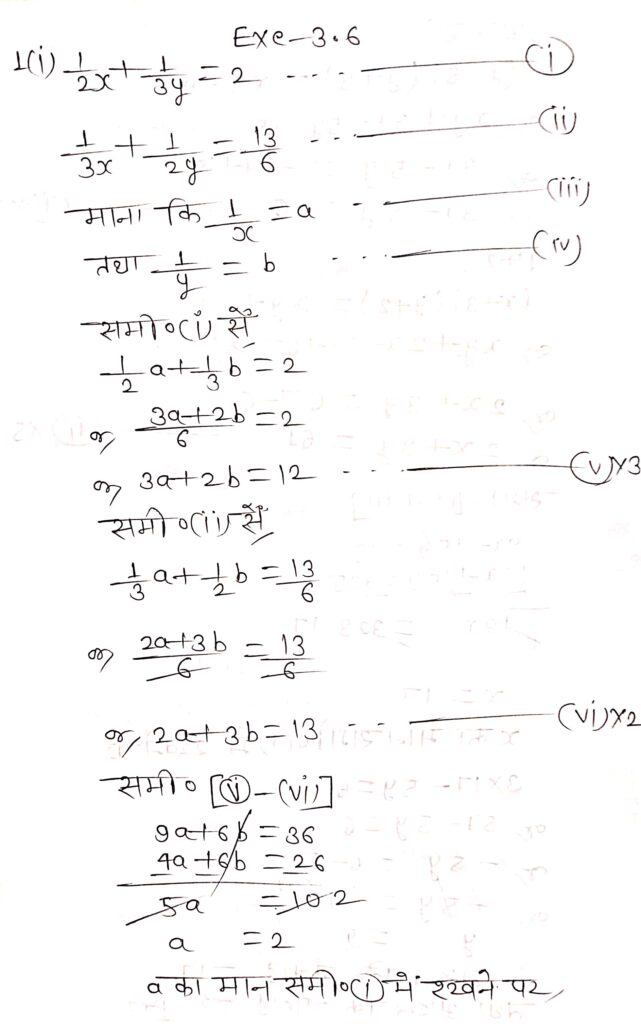 Exe-3.6
1(i) 1/2x + 1/3y = 2 ... (i)
1/3x + 1/2y = 13/6 ... (ii)
माना कि 1/x = a ... (iii)
तथा 1/y = b ... (iv)
समी०(i) सें
1/2 a + 1/3 b = 2
or, 3a+2b/6 = 2
or, 3a+2b = 12 ... (v)×3
समी०(ii) सें
1/3 a + 1/2 b = 13/6
or, 2a+3b/6 = 13/6
or, 2a+3b = 13 ... (vi)×2
समी० [(v)-(vi)]
9a+6b = 36
4a+6b = 26
5a = 10 2
a = 2
a का मान समी०(i) में रखने पर,